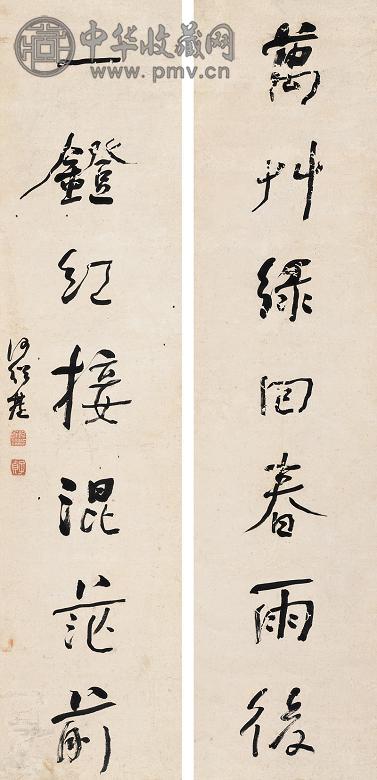 萬艸綠回春雨後
一鐙紅接混茫前
何紹基
中华收藏网
www.pmv.cn